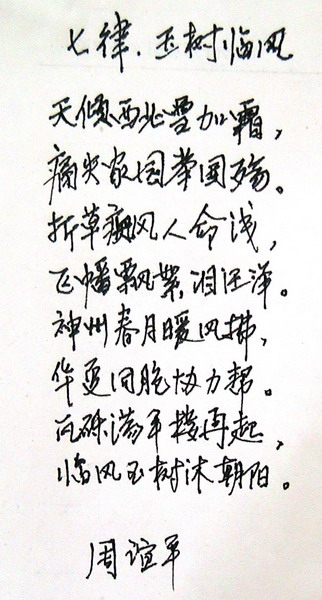 七律.玉树临风
天倾西北雪加霜，
痛失家园举国殇。
折草癫风人命浅，
飞幡飘絮泪汪洋。
神州春月暖风拂，
华夏同胞协力帮。
瓦砾满平楼再起，
临风玉树沐朝阳。
周谊平